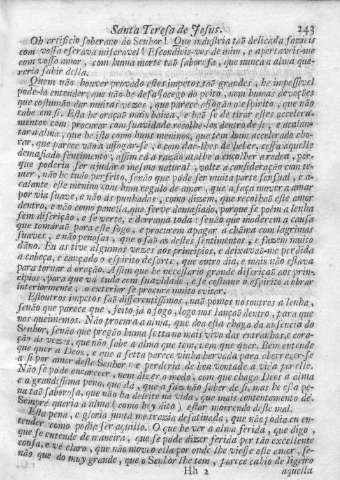 Santa Teresa de Jesus. 243
Oh artificio soberano do Senhor! Que industria taõ delicada fazeis
com vossa escrava miseravel! Escondieis-vos de mim, e apertaveis-me
com vosso amor, com huma morte taõ saborosa, que nunca a alma que-
reria sahir della.
Quem naõ houver provado estes impetos taõ grandes, he impossivel
pode-lo entender, que naõ he desassocego do peito, nem humas devoções
que costumaõ dar muitas vezes, que parece affogaõ o espirito, que naõ
cabe em si. Esta he oraçaõ mais baixa, e ha-se de tirar estes accelera-
mentos com procurar com suavidade recolhelos dentro de si, e acalen-
tar a alma; que he isto como huns meninos, que tem hum accelerado cho-
rar, que parece vaõ a affogar-se, e com dar-lhes de beber, cessa aquelle
demasiado sentimento; assim cá a razaõ atalhe a encolher a redea, por-
que poderia ser ajudar o mesmo natural, volte a consideraçaõ com te-
mer, naõ he tudo perfeito, senaõ que póde ser muita parte sensual, e a-
calente este menino com hum regalo de amor, que a faça mover a amar
por via suave, e naõ ás punhadas, como dizem, que recolhaõ este amor
dentro, e naõ como panella, que ferve demasiado, porque se poem a lenha
sem discriçaõ, e se verte, e derrama toda: senaõ que moderem a causa
que tomáraõ para este fogo, e procurem apagar a chama com lagrimas
suaves, e naõ penosas, que o saõ as destes sentimentos, e fazem muito
dano. Eu as tive algumas vezes aos principios, e deixavaõ-me perdida
a cabeça, e cançado o espirito de sorte, que outro dia, e mais naõ estava
para tornar á oraçaõ. Assim que he necessario grande discriçaõ aos prin-
cipios, para que vá tudo com suavidade, e se costume o espirito a obrar
interiormente, o exterior se procure muito evitar.
Estoutros impetos saõ differentissimos, naõ pomos nós outros a lenha,
senaõ que parece que, feito já o fogo, logo nos lançaõ dentro, para que
nos queimemos. Naõ procura a alma, que doa esta chaga da ausencia do
Senhor, senaõ que pregaõ huma setta no mais vivo das entranhas, e cora-
çaõ ás vezes, que naõ sabe a alma que tem, nem que quer. Bem entende
que quer a Deos, e que a setta parece vinha hervada para aborrecer-se
a si por amor deste Senhor, e perderia de boa vontade a vida por elle.
Naõ se póde encarecer, nem dizer o modo, com que chaga Deos a alma
e a grandissima pena, que dá, que a faz naõ saber de si, mas he esta pe-
na taõ saborosa, que naõ ha deleite na vida, que mais contentamento dê.
Sempre queria a alma (como hey dito) estar morrendo deste mal.
Esta pena, e gloria junta me trazia desatinada, que naõ podia en-
tender como podia ser aquillo. O que he ver a alma ferida, que digo,
que se entende de maneira, que se póde dizer ferida por taõ excellente
causa, e vê claro, que naõ moveo ella por onde lhe viesse este amor, se-
naõ que do muy grande, que o Senhor lhe tem, parece cahio de ligeiro
Hh 2 aquella